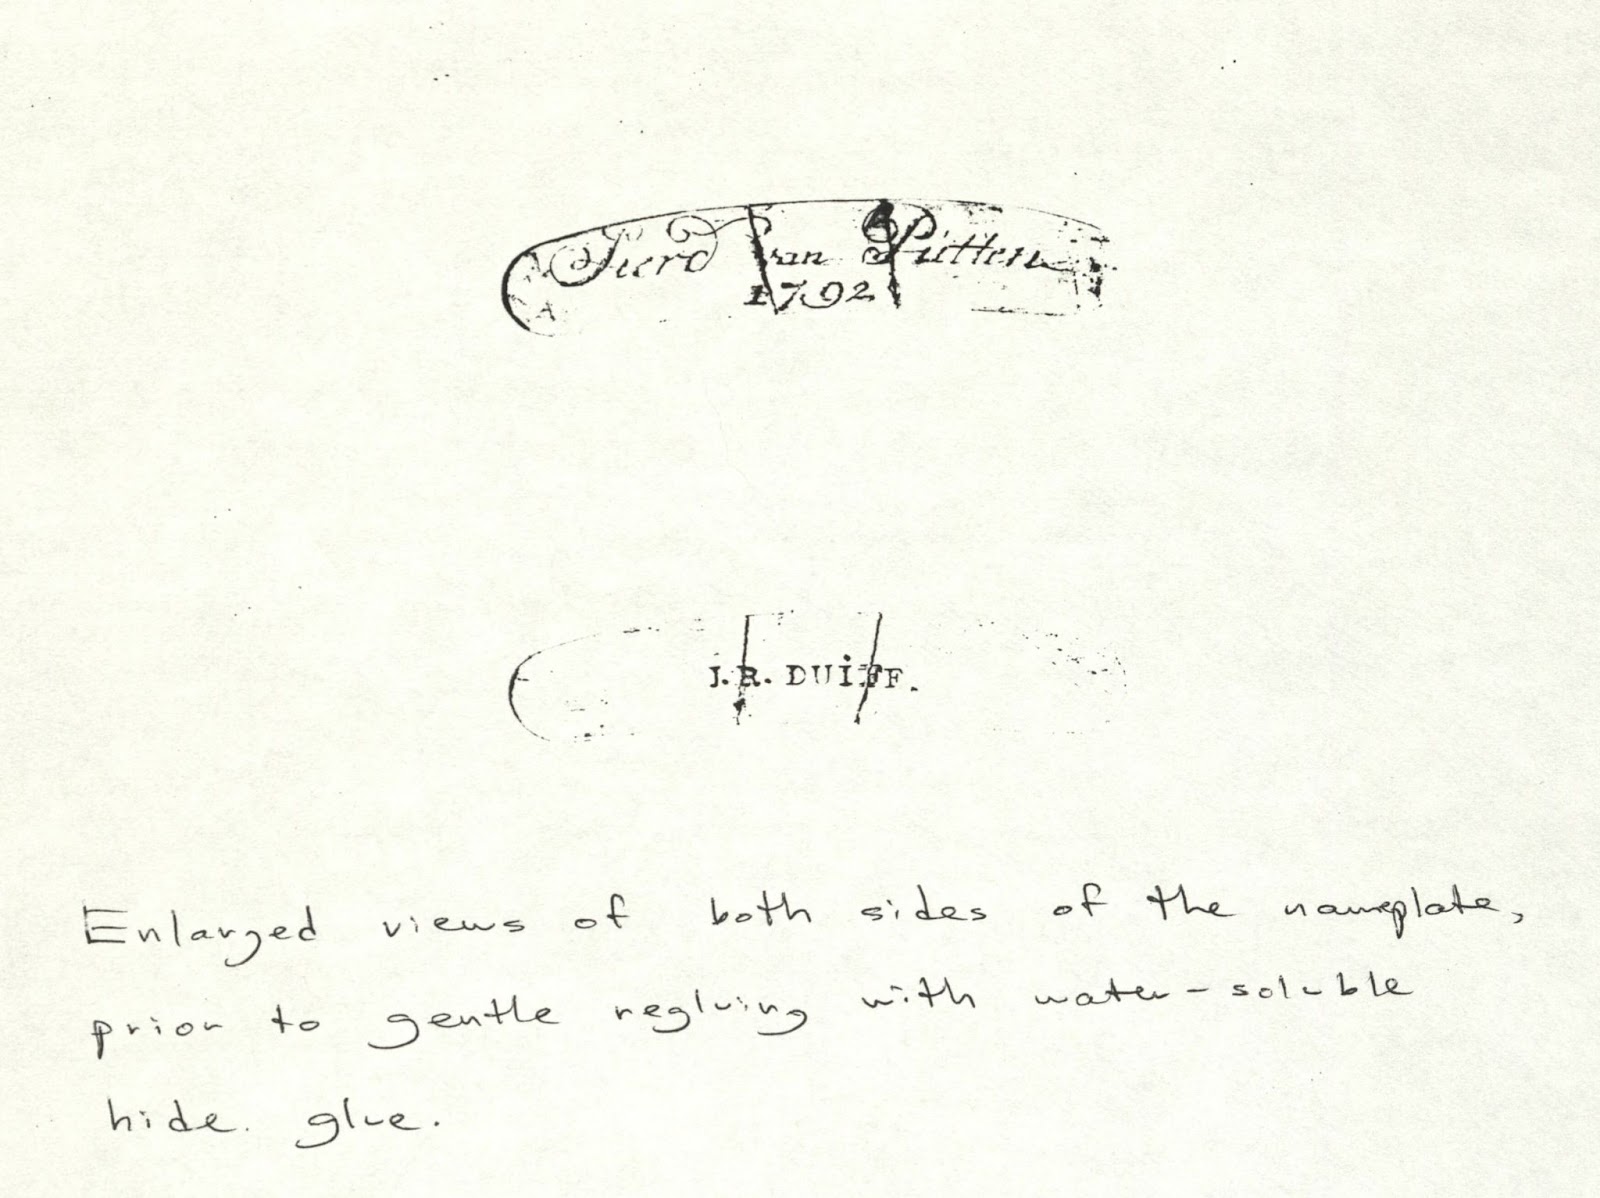 Sierd van Pütten
1792
A
J. R. DUiFF.
Enlarged views of both sides of the nameplate,
prior to gentle regluing with water-soluble
hide glue.